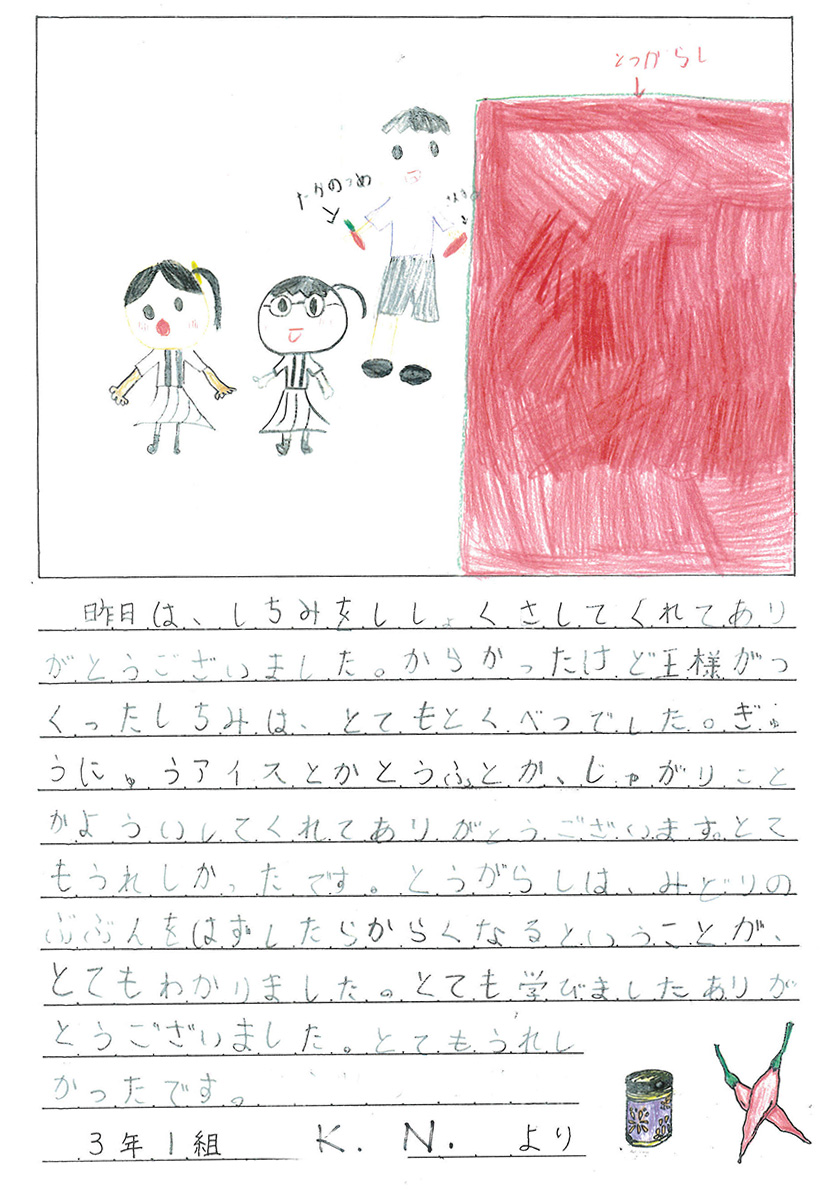 とうがらし
たかのつめ
昨日は、しちみをししょくさしてくれてあり
がとうございました。からかったけど王様がつ
くったしちみは、とてもとくべつでした。ぎゅ
うにゅうアイスとかとうふとか、じゃがりこと
かよういしてくれてありがとうございます。とて
もうれしかったです。とうがらしは、みどりの
ぶぶんをはずしたらからくなるということが、
とてもわかりました。とても学びましたありが
とうございました。とてもうれし
かったです。
3年1組 K. N. より